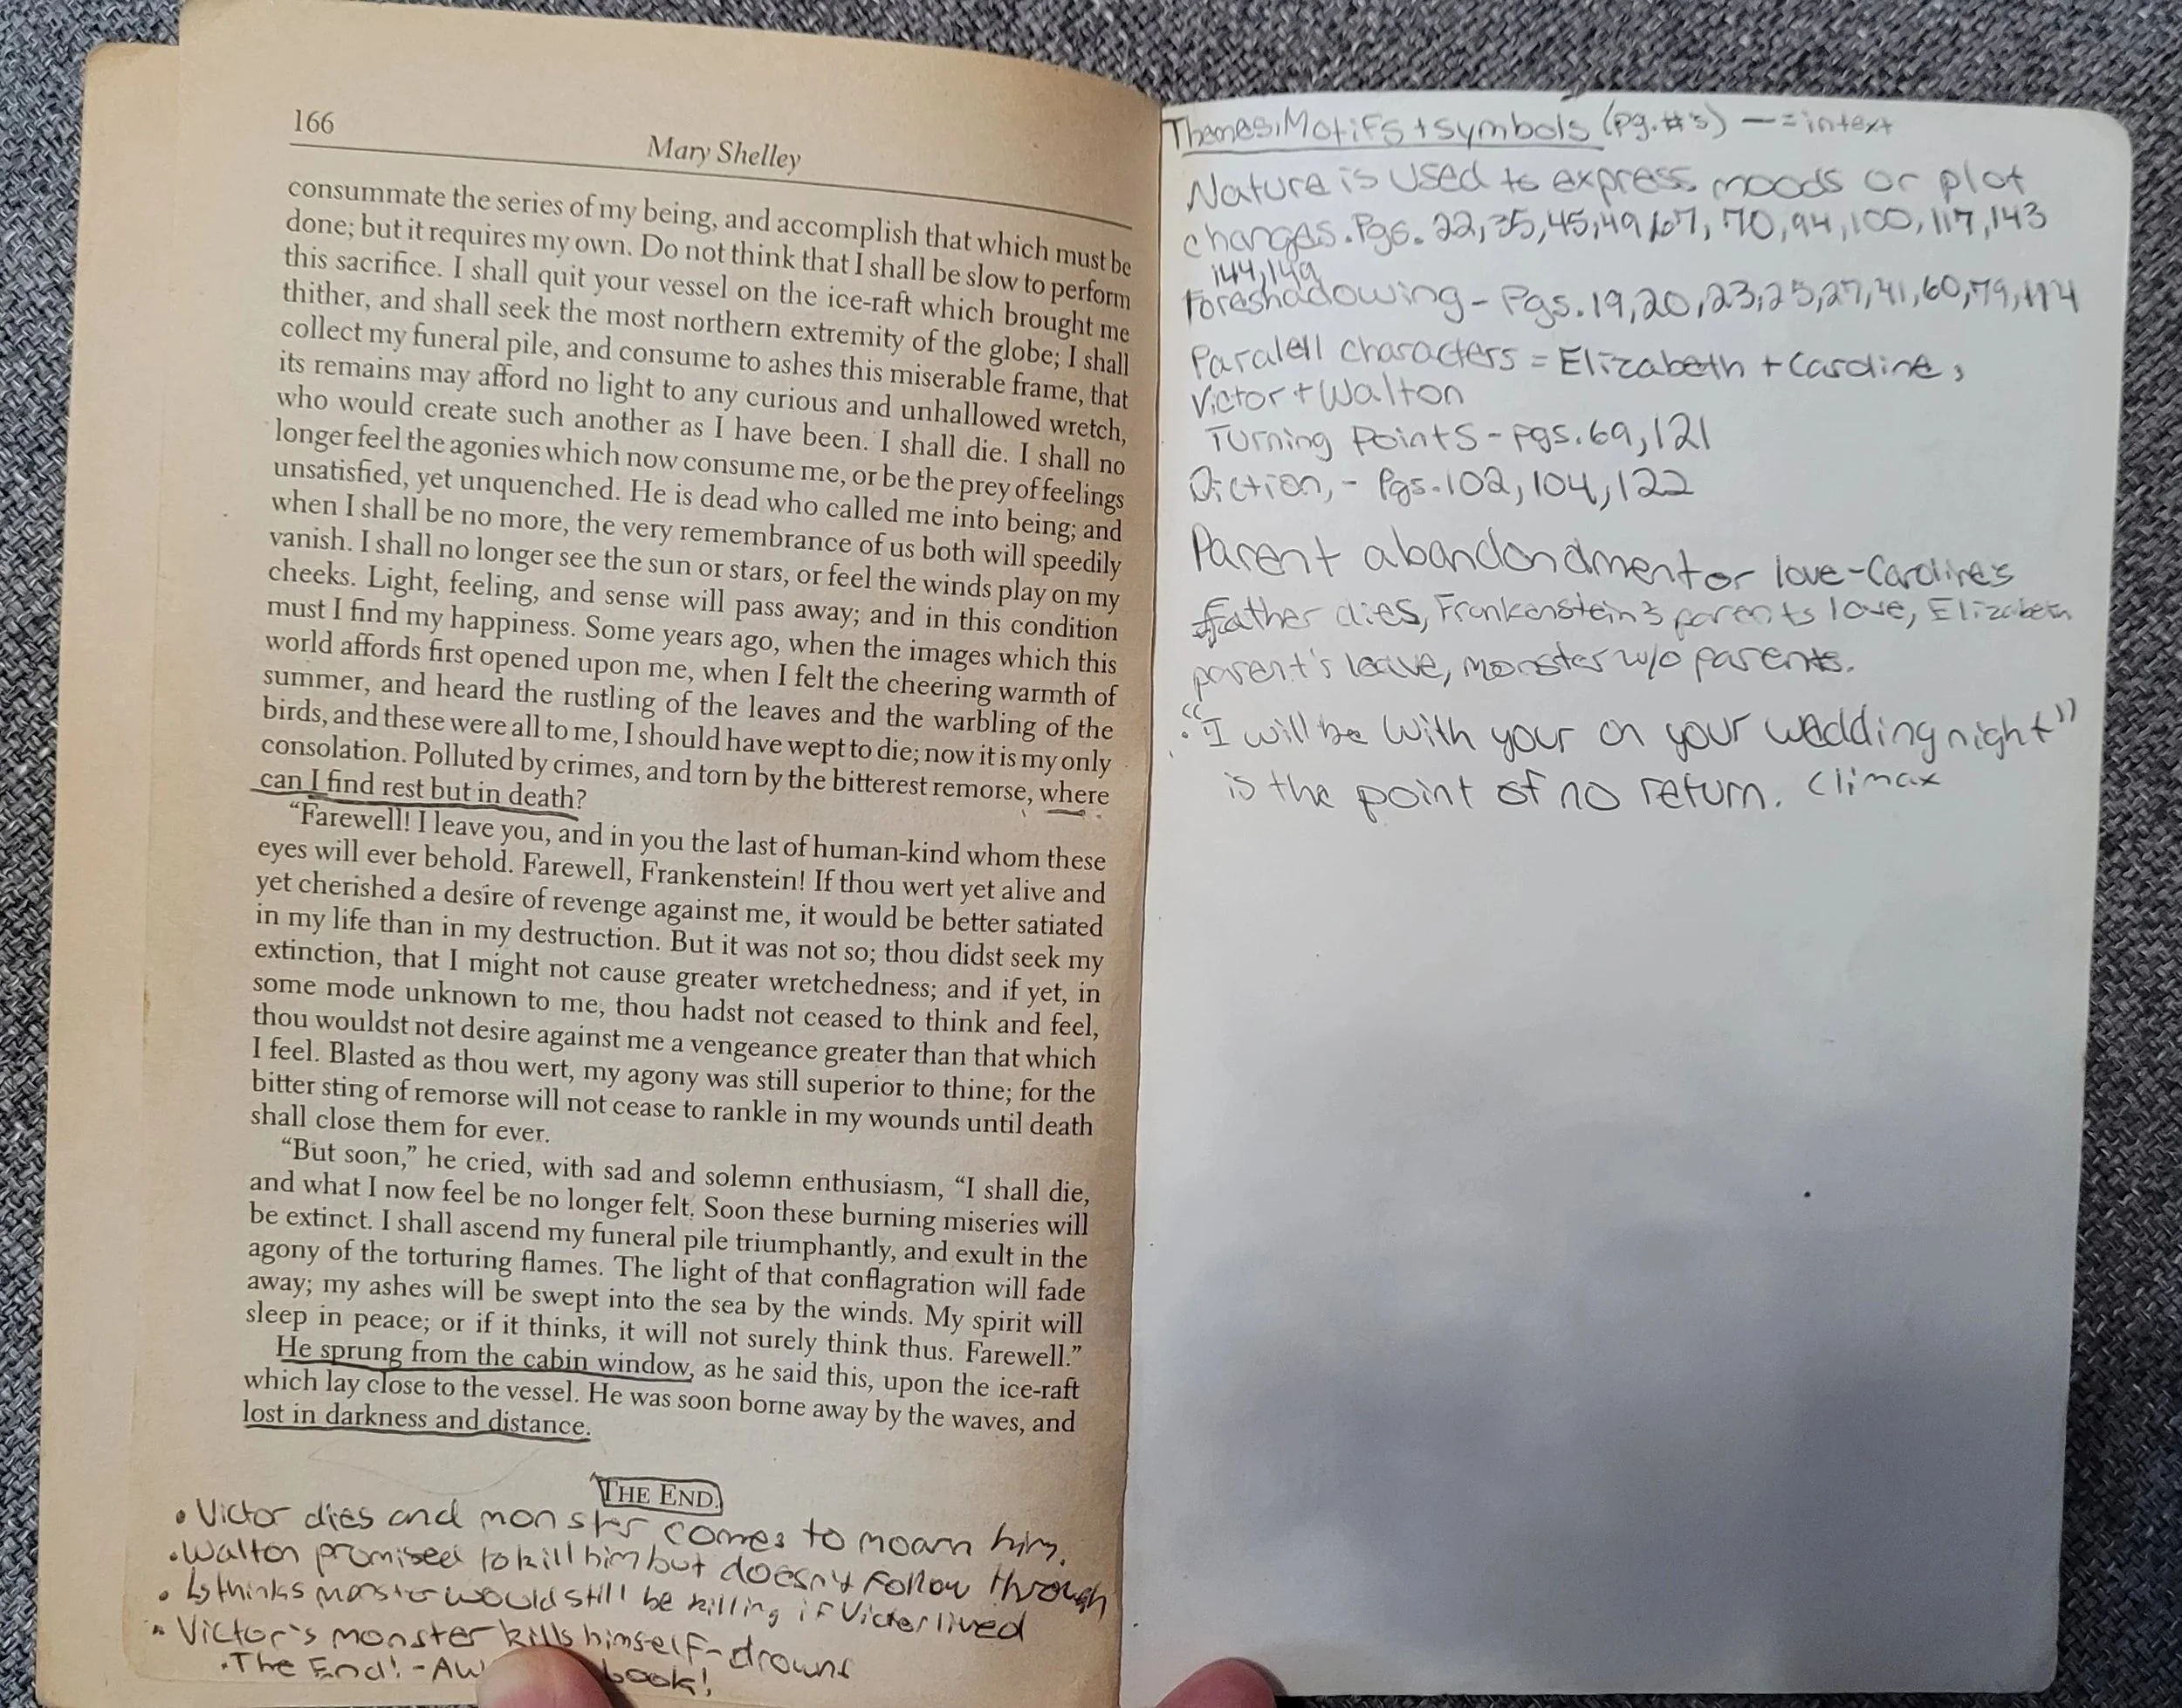 166
Mary Shelley
consummate the series of my being, and accomplish that which must be
done; but it requires my own. Do not think that I shall be slow to perform
this sacrifice. I shall quit your vessel on the ice-raft which brought me
thither, and shall seek the most northern extremity of the globe; I shall
collect my funeral pile, and consume to ashes this miserable frame, that
its remains may afford no light to any curious and unhallowed wretch,
who would create such another as I have been. I shall die. I shall no
longer feel the agonies which now consume me, or be the prey of feelings
unsatisfied, yet unquenched. He is dead who called me into being; and
when I shall be no more, the very remembrance of us both will speedily
vanish. I shall no longer see the sun or stars, or feel the winds play on my
cheeks. Light, feeling, and sense will pass away; and in this condition
must I find my happiness. Some years ago, when the images which this
world affords first opened upon me, when I felt the cheering warmth of
summer, and heard the rustling of the leaves and the warbling of the
birds, and these were all to me, I should have wept to die; now it is my only
consolation. Polluted by crimes, and torn by the bitterest remorse, where
can I find rest but in death?
“Farewell! I leave you, and in you the last of human-kind whom these
eyes will ever behold. Farewell, Frankenstein! If thou wert yet alive and
yet cherished a desire of revenge against me, it would be better satiated
in my life than in my destruction. But it was not so; thou didst seek my
extinction, that I might not cause greater wretchedness; and if yet, in
some mode unknown to me, thou hadst not ceased to think and feel,
thou wouldst not desire against me a vengeance greater than that which
I feel. Blasted as thou wert, my agony was still superior to thine; for the
bitter sting of remorse will not cease to rankle in my wounds until death
shall close them for ever.
“But soon,” he cried, with sad and solemn enthusiasm, “I shall die,
and what I now feel be no longer felt. Soon these burning miseries will
be extinct. I shall ascend my funeral pile triumphantly, and exult in the
agony of the torturing flames. The light of that conflagration will fade
away; my ashes will be swept into the sea by the winds. My spirit will
sleep in peace; or if it thinks, it will not surely think thus. Farewell.”
He sprung from the cabin window, as he said this, upon the ice-raft
which lay close to the vessel. He was soon borne away by the waves, and
lost in darkness and distance.
THE END.
• Victor dies and monster comes to moarn him.
• Walton promised to kill him but doesn't follow through
• ↳ thinks monster would still be killing if Victor lived
• Victor's monster kills himself - drowns
• The End! - book!
Themes, Motifs + symbols (pg. #'s) — = in text
Nature is used to express moods or plot
changes. Pgs. 22, 35, 45, 49, 67, 70, 94, 100, 117, 143
144, 149
Foreshadowing - Pgs. 19, 20, 23, 25, 27, 41, 60, 79, 114
Paralell characters = Elizabeth + Caroline,
Victor + Walton
Turning Points - pgs. 69, 121
Diction, - Pgs. 102, 104, 122
Parent abandondment or love - Caroline's
father dies, Frankenstein's parents love, Elizabeth
parent's leave, monster w/o parents.
"I will be with your on your wedding night"
is the point of no return. Climax